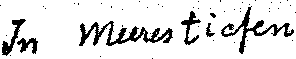 In Meerestiefen